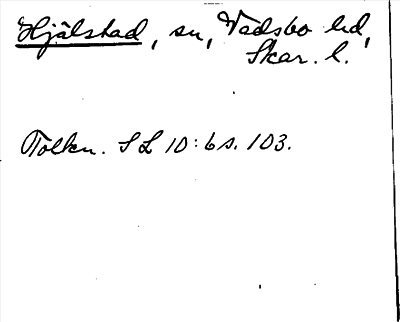 Hjälstad, sn, Vadsbo hd,
Skar. l.
Tolkn. SL 10:6 s. 103.